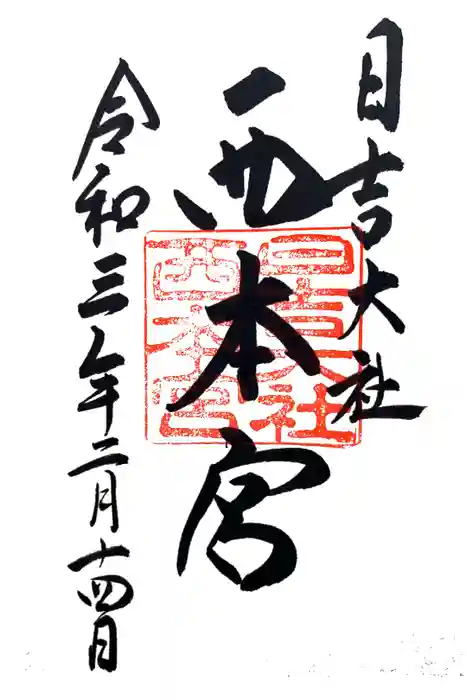 日吉大社
西本宮
令和三年二月十四日
日吉大社
西本宮